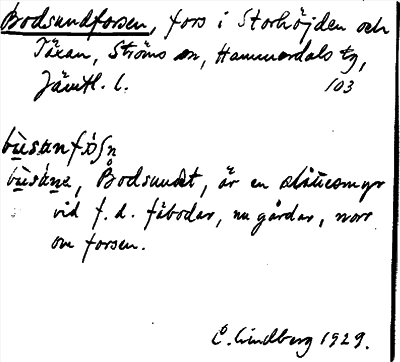 Bodsundforsen, fors i Storhöjden och
Täxan, Ströms sn, Hammerdals tg,
Jämtl. l. 103
bùsanfòʃn
bùsáne, Bodsundet, är en slåttesmyr
vid f. d. fäbodar, nu gårdar, norr
om forsen.
E. Lindberg 1929.